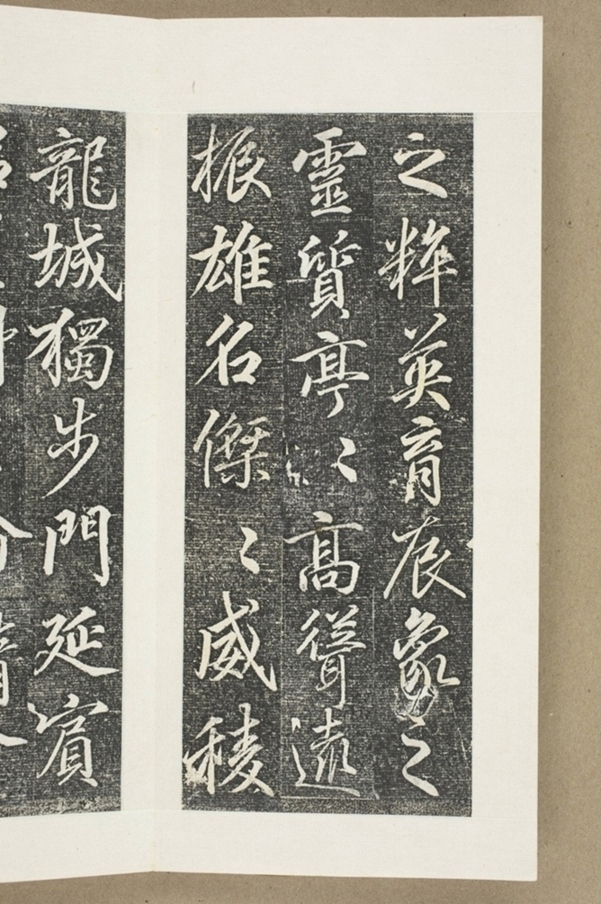 之粹英育辰象之
靈質亭〻高聳遠
振雄名傑〻威稜
龍城獨步門延賓